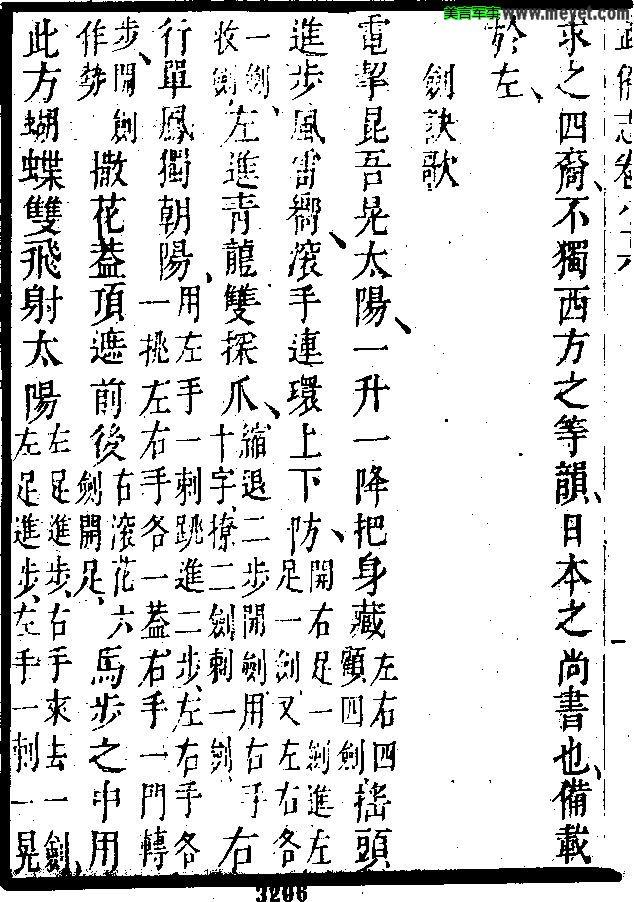 美言军事 www.meyet.com
武備志卷八十六
一
求之四裔、不獨西方之等韻、日本之尚書也、備載
於左、
劍訣歌
電掣昆吾晃太陽、一升一降把身藏左右四顧四劍搖頭
進步風雷嚮、滾手連環上下防、開右足一劍進左足一劍又左右各
一劍、收劍、左進青龍雙探爪、縮退二步開劍用右手十字、撩二劍刺一劍右
行單鳳獨朝陽、用左手一刺跳進二步、左右手各一挑左右手各一蓋、右手一門轉
步、開劍作勢撒花蓋頂遮前後右滾花六劍開足、馬步之中用
此方蝴蝶雙飛射太陽左足進步、右手來去一劍、左足進步、左手一刺一晃
3206